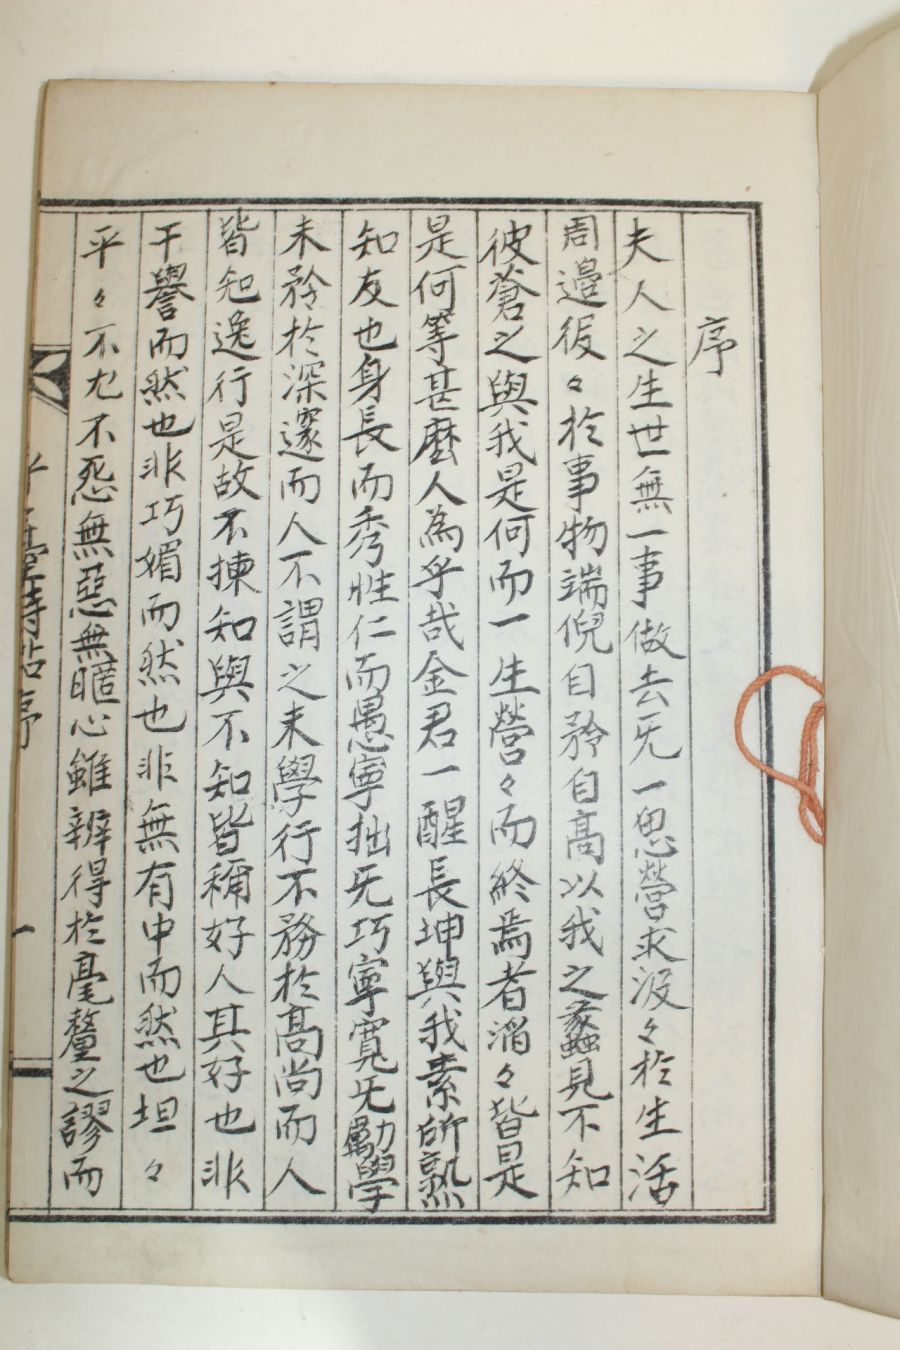 序
夫人之生世無一事做去旡一思營求汲々於生活
周邉役々於事物端倪自矜自高以我之蠡見不知
彼蒼之與我是何而一生營々而終焉者滔々皆是
是何等甚麽人為乎哉金君一醒長坤與我素所熟
知友也身長而秀性仁而愚寧拙旡巧寧寬旡勵學
未矜於深邃而人不謂之未學行不務於高尚而人
皆知逸行是故不揀知與不知皆稱好人其好也非
干譽而然也非巧媚而然也非無有中而然也坦々
平々不尤不怨無惡無慝心雖辨得於毫釐之謬而
臺詩帖序
一